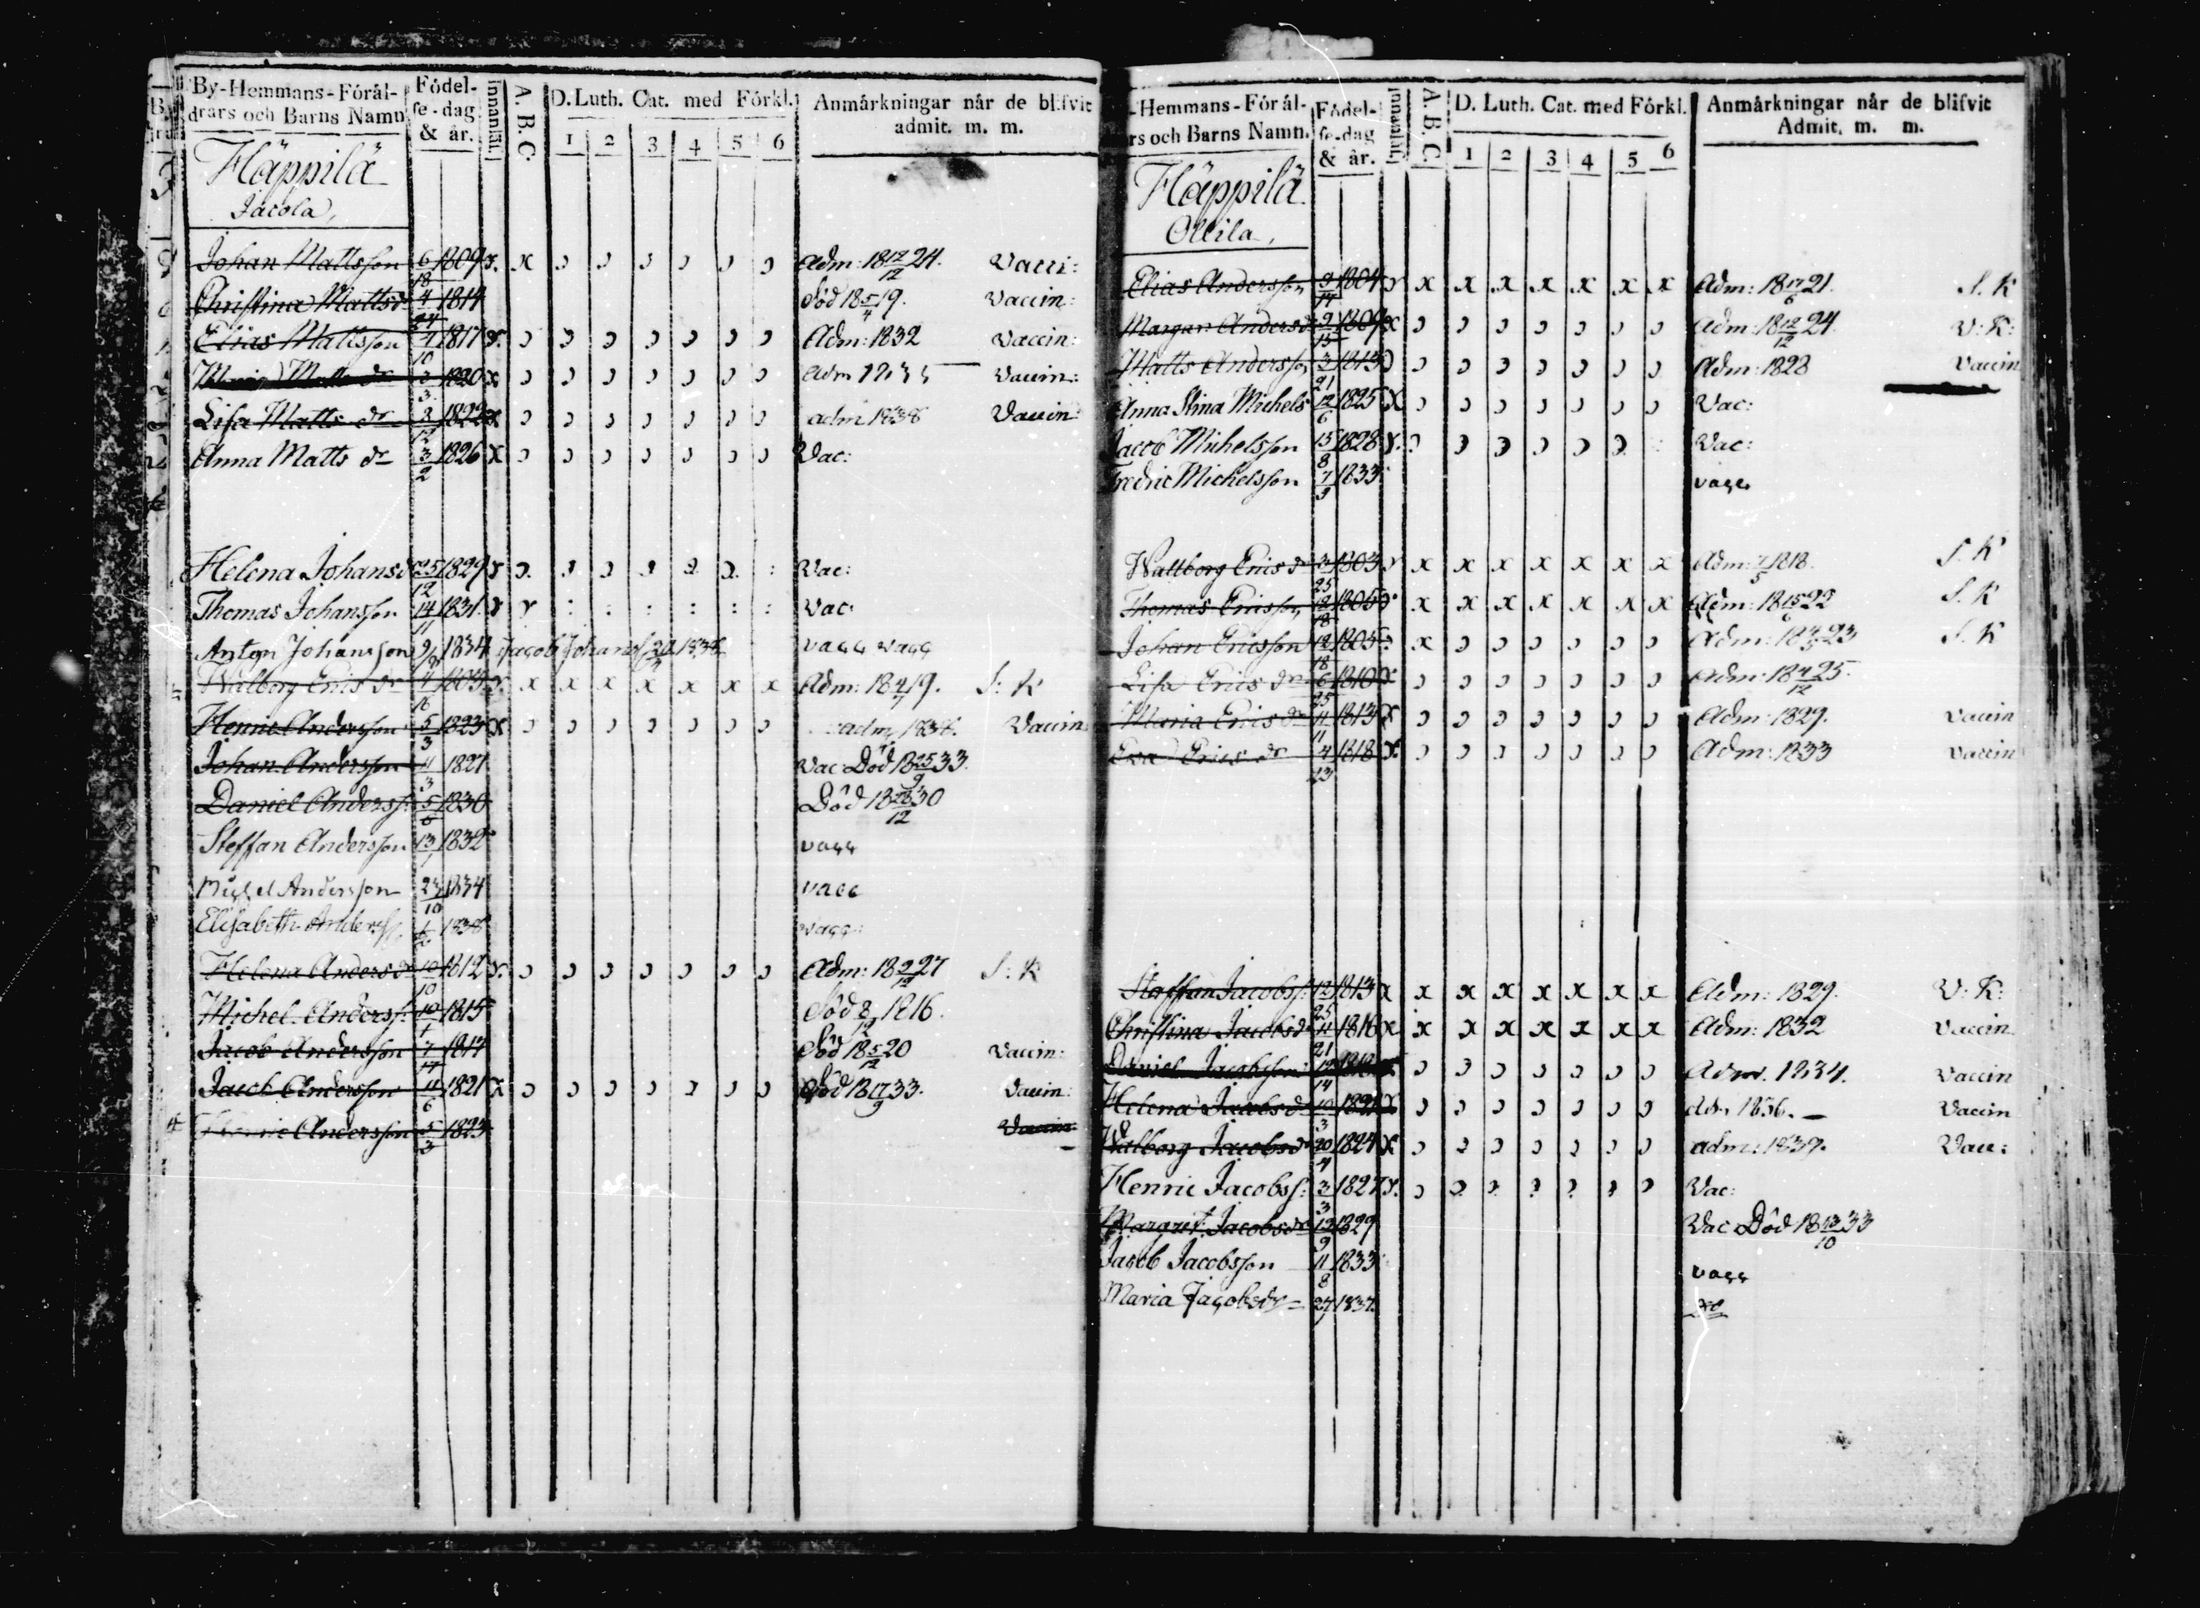 By-Hemmans-Föräl-
drars och Barns Namn
Födel-
se-dag
& år.
Innanläs.
A. B. C.
D. Luth. Cat. med Förkl.
1 2 3 4 5 6
Anmärkningar när de blifvit
admit. m. m.
Häppilä
Jacola,
Johan Mattsson 6/18 1809 x. x ɔ ɔ ɔ ɔ ɔ ɔ Adm: 18 12/12 24. Vacci:
Christina Mattsdr 4/24 1814 Död 18 5/4 19. Vaccin:
Elias Mattsson 4/10 1817 x. ɔ ɔ ɔ ɔ ɔ ɔ ɔ Adm: 1832 Vaccin:
Maria Matts dr 3/3 1820 x ɔ ɔ ɔ ɔ ɔ ɔ ɔ Adm 1835 Vaccin:
Lisa Matts dr 3/12 1822 x ɔ ɔ ɔ ɔ ɔ ɔ ɔ adm 1838 Vaccin:
Anna Matts dr 3/2 1826 x ɔ ɔ ɔ ɔ ɔ ɔ ɔ Vac:
Helena Johansd 25/12 1829 Vac:
Thomas Johansson 14/11 1831. x : : : : : : Vac:
Anton Johansson 9/8 1834 Jacob Johans. 20 1838 vacc vacc
Walborg Erics dr 4/16 1803 x. x x x x x x x Adm: 18 4/7 19. S: K
Henric Andersson 5/3 1823 x ɔ ɔ ɔ ɔ ɔ ɔ ɔ adm 1838. Vaccin
Johan Andersson 11/3 1827 Vac: Död 18 25/9 33.
Daniel Anderss: 5/6 1830 Död 18 28/12 30
Steffan Andersson 13/1 1832 vacc
Michel Andersson 23/10 1834 vacc
Elisabeth Anderss. 1838 vacc:
Helena Anders dr 10/10 1812 x. ɔ ɔ ɔ ɔ ɔ ɔ ɔ Adm: 18 2/12 27 S: K
Michel Anderss: 10/1 1815 Död 8/12 1816.
Jacob Andersson 7/17 1817 Död 18 5/12 20 Vaccin:
Jacob Andersson 11/6 1821 x ɔ ɔ ɔ ɔ ɔ ɔ ɔ Död 18 17/9 33. Vaccin:
Henric Andersson 5/3 1823 Vaccin:
-Hemmans-Föräl-
rs och Barns Namn.
Födel-
se-dag
& år.
Innanläs.
A. B. C.
D. Luth. Cat. med Förkl.
1 2 3 4 5 6
Anmärkningar när de blifvit
Admit. m. m.
Häppilä
Ollila,
Elias Andersson 9/17 1804 x x x x x x x Adm: 18 17/6 21. S. K
Margar: Andersdr 9/15 1809 x ɔ ɔ ɔ ɔ ɔ ɔ ɔ Adm: 18 12/12 24. V: K:
Matts Andersson 3/21 1813 ɔ ɔ ɔ ɔ ɔ ɔ ɔ Adm: 1828 Vaccin
Anna Stina Michels 12/6 1825 x ɔ ɔ ɔ ɔ ɔ ɔ ɔ Vac:
Jacob Michelsson 15/8 1828 x. ɔ ɔ ɔ ɔ ɔ ɔ Vac:
Fredric Michelsson 7/9 1833 vacc
Wallborg Erics dr 3/25 1803 x x x x x x x Adm: 7/5 1818. S. K
Thomas Ericsson 12/18 1805 x x x x x x x Adm: 18 15/6 22 S. K
Johan Ericsson 12/18 1805 x ɔ ɔ ɔ ɔ ɔ ɔ Adm: 18 4/5 23 S. K
Lisa Erics dr 6/25 1810 x ɔ ɔ ɔ ɔ ɔ ɔ ɔ Adm: 18 4/12 25.
Maria Erics dr 11/11 1813 x ɔ ɔ ɔ ɔ ɔ ɔ ɔ Adm: 1829. Vaccin
Eva Erics dr 4/23 1818 x. ɔ ɔ ɔ ɔ ɔ ɔ ɔ Adm: 1833 Vaccin
Staffan Jacobss: 12/25 1813 x x x x x x x x Adm: 1829. V: K:
Christina Jacobsdr 11/21 1816 x x x x x x x x Adm: 1832 Vaccin
Daniel Jacobsson 12/14 1818 x ɔ ɔ ɔ ɔ ɔ ɔ ɔ Adm. 1834. Vaccin
Helena Jacobsdr 10/3 1821 x ɔ ɔ ɔ ɔ ɔ ɔ ɔ adm 1836. Vaccin
Walborg Jacobsdr 20/4 1824 x ɔ ɔ ɔ ɔ ɔ ɔ ɔ adm: 1839. Vacc:
Henric Jacobss: 3/3 1827 x. ɔ ɔ ɔ ɔ ɔ ɔ ɔ Vac:
Margret Jacobsdr 13/9 1829 Vac: Död 18 13/10 33
Jacob Jacobsson 11/8 1833 vacc
Maria Jacobsdr 27/7 1837